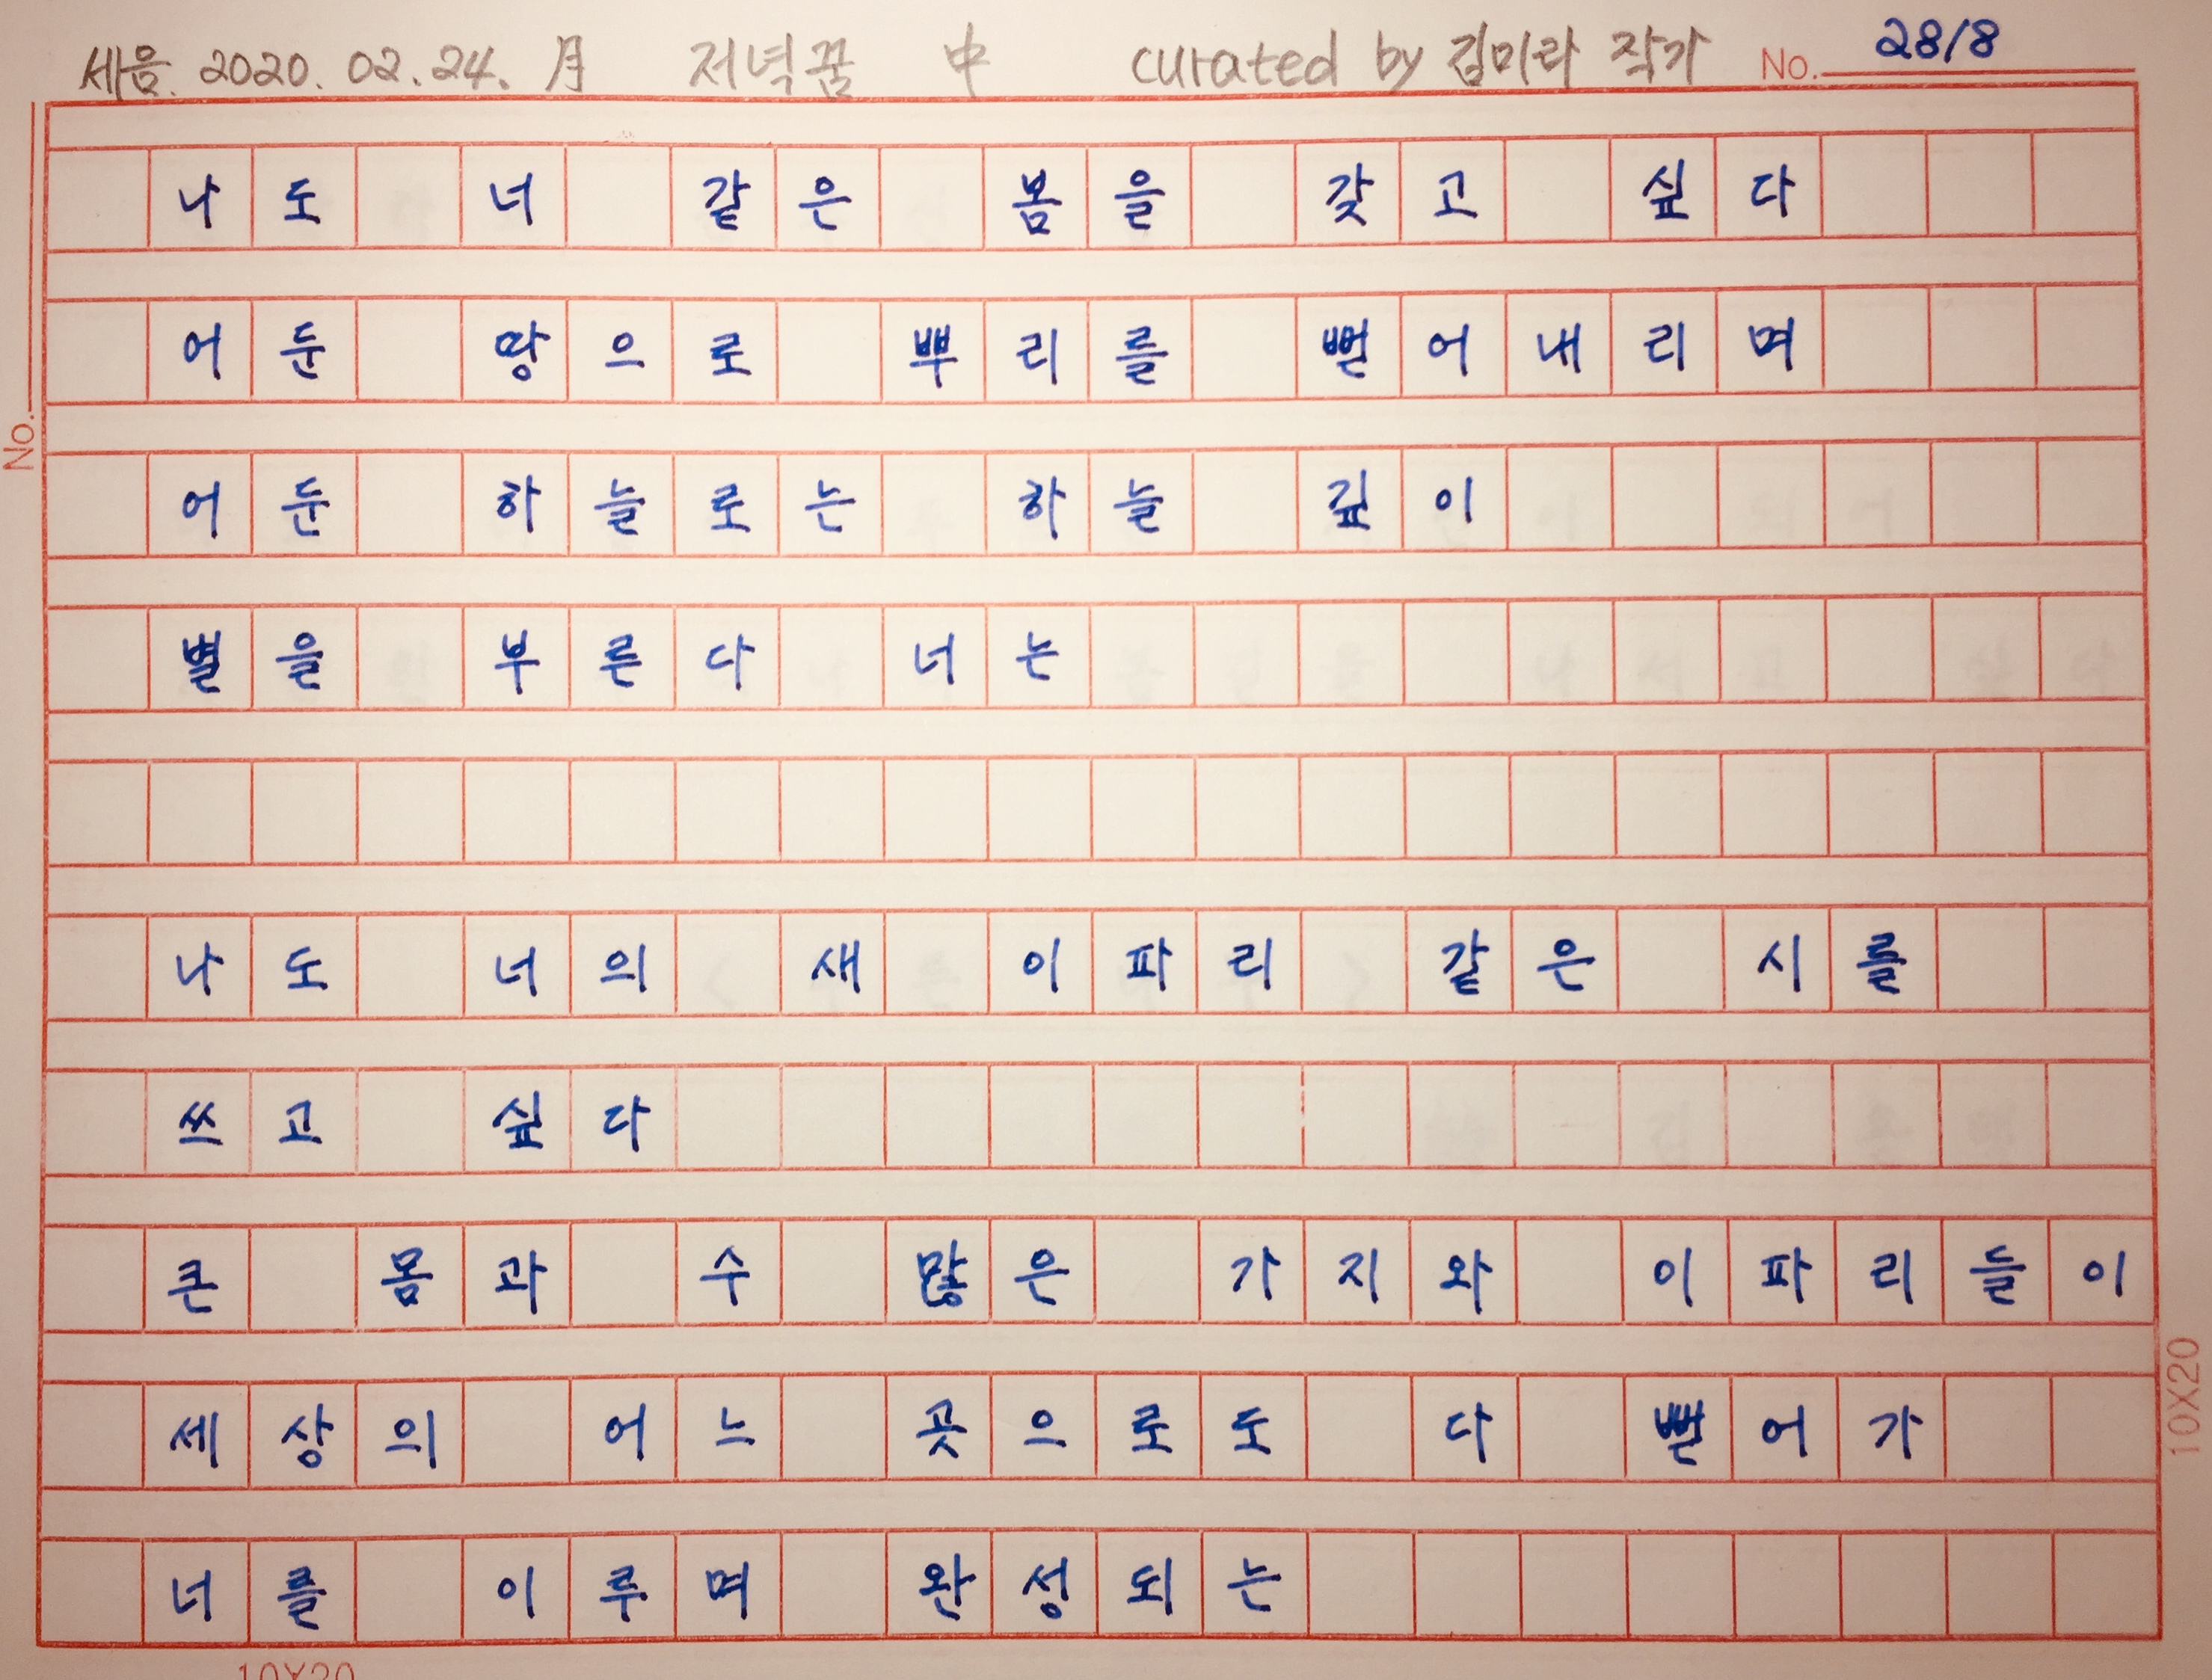 세음. 2020. 02. 24. 月 저녁꿈 中 curated by 김미라 작가 No. 28/8
나도 너 같은 봄을 갖고 싶다
어둔 땅으로 뿌리를 뻗어내리며
어둔 하늘로는 하늘 깊이
No.
별을 부른다 너는
나도 너의 새 이파리 같은 시를
쓰고 싶다
큰 몸과 수 많은 가지와 이파리들이
세상의 어느 곳으로도 다 뻗어가
10X20
너를 이루며 완성되는
10X20